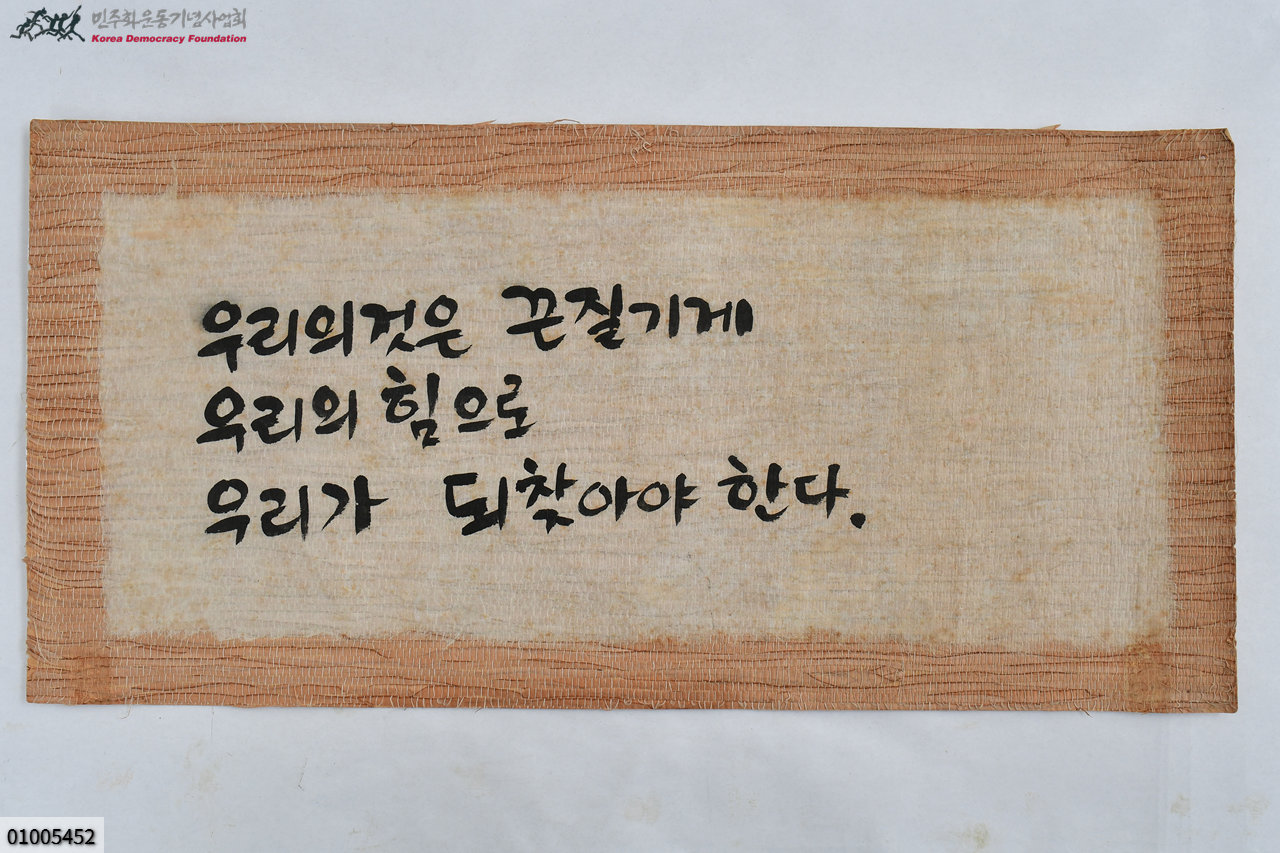 민주화운동기념사업회
Korea Democracy Foundation
우리의것은 끈질기게
우리의 힘으로
우리가 되찾아야 한다.
01005452